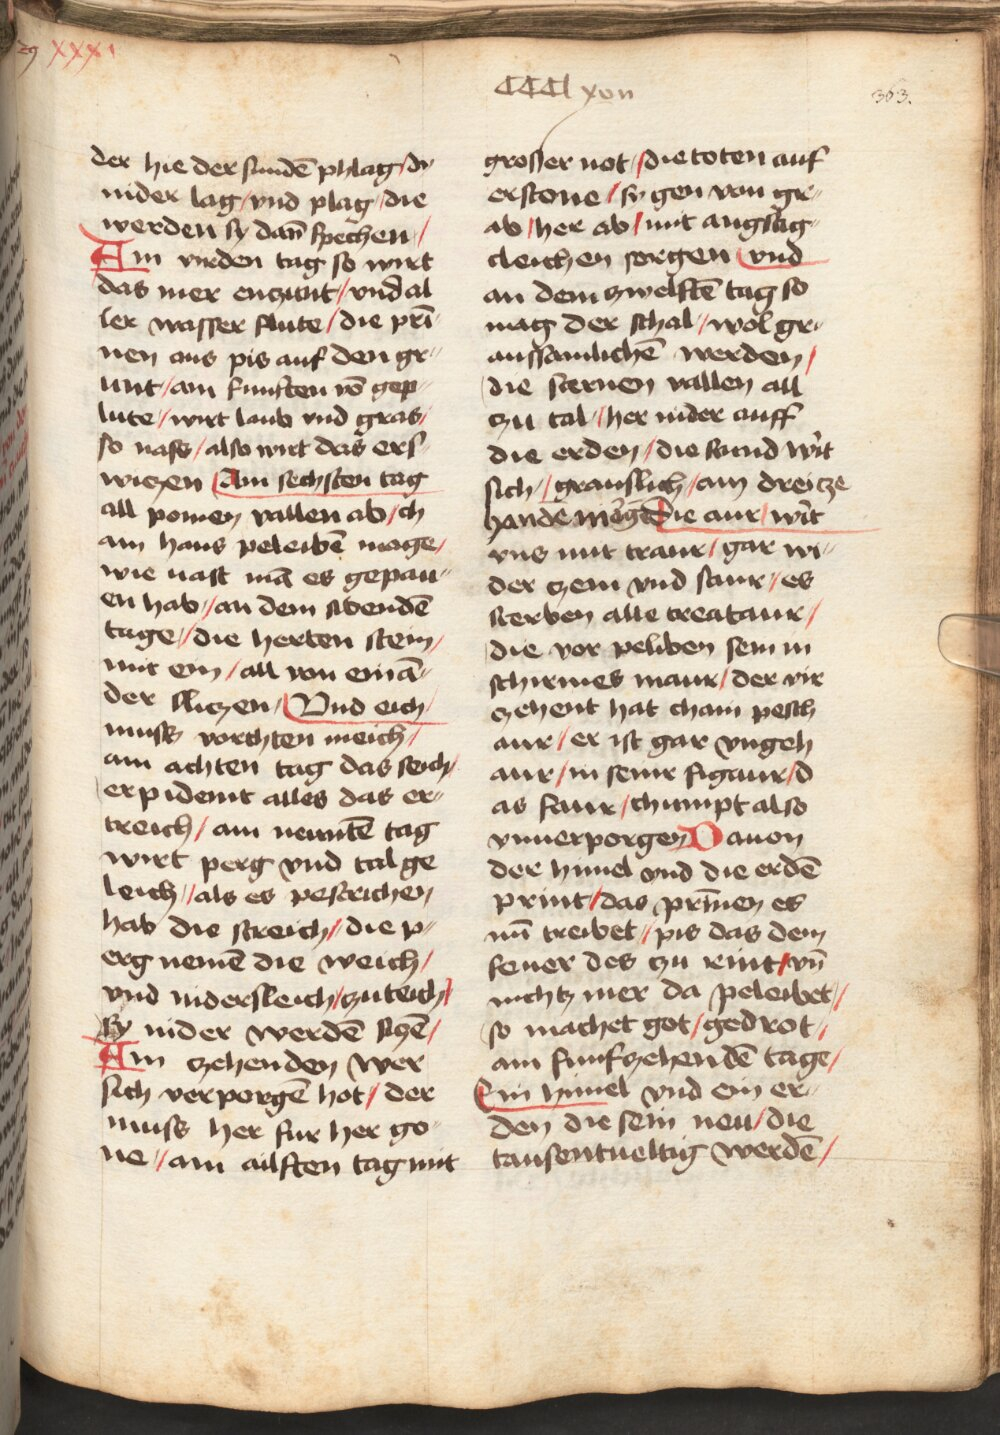 XXXI
CCCLxvn
363.
der hie der sundē phlag / dy
nider lag / vnd plag / die
werden sy dan̄ spechen /
Am virden tag so wirt
das mer enczunt / vnd al
ler wasser flute / die pri̅
nen aus pis auf den gr⸗
unt / am funften vō gep⸗
lute / wirt laub vnd gras /
so nass / also wirt das ers⸗
wiczen Am sechsten tag
all pomen vallen ab / ch
am haus peleibē mage /
wie uast mā es gepau⸗
en hab / an dem sibendē
tage / die herten stein /
mit ein / all von einā⸗
der sliczen / Vnd eich
muss vorchten meich /
am achten tag das seich /
erpidemt alles das er⸗
treich / am neuntē tag
wirt perg vnd tal ge
leich / als es pestrichen
hab die streich / die p⸗
erg nemē die weich /
vnd nidersleich / zuteich /
sy nider werdē siczē /
Am zehenden wer
sich verporgē hot / der
muss her fur her go⸗
ne / am ailften tag mit
grosser not / die toten auf
erstone / sy gen von gr⸗
ab / her ab / mit angstig⸗
cleichen sorgen vnd
an dem zwelftē tag so
mag der schal / wol gr⸗
aussamlichē werden /
die sternen vallen all
zu tal / her nider auff
die erden / die stund wirt
sich / grauslich / am dreicze
hande morgē Die aur / wirt
vns mit traur / gar wi⸗
der zem vnd saur / es
sterben alle creataur /
die vor peliben sein in
schirmes maur / der vir
zehent hat cham pesch
aur / er ist gar vngeh
aur / in seinr figaur / d
as faur / chumpt also
vnuerporgen Dauon
der himel vnd die erdē
print / das prin̄en es
nū treibet / pis das dem
feuer des zu rint / vn̄
nichtz mer da peleibet /
so machet got / gedrot /
am funfzehendē tage /
Ein himel vnd ein er⸗
den die sein neu / die
tausentueltig werdē /